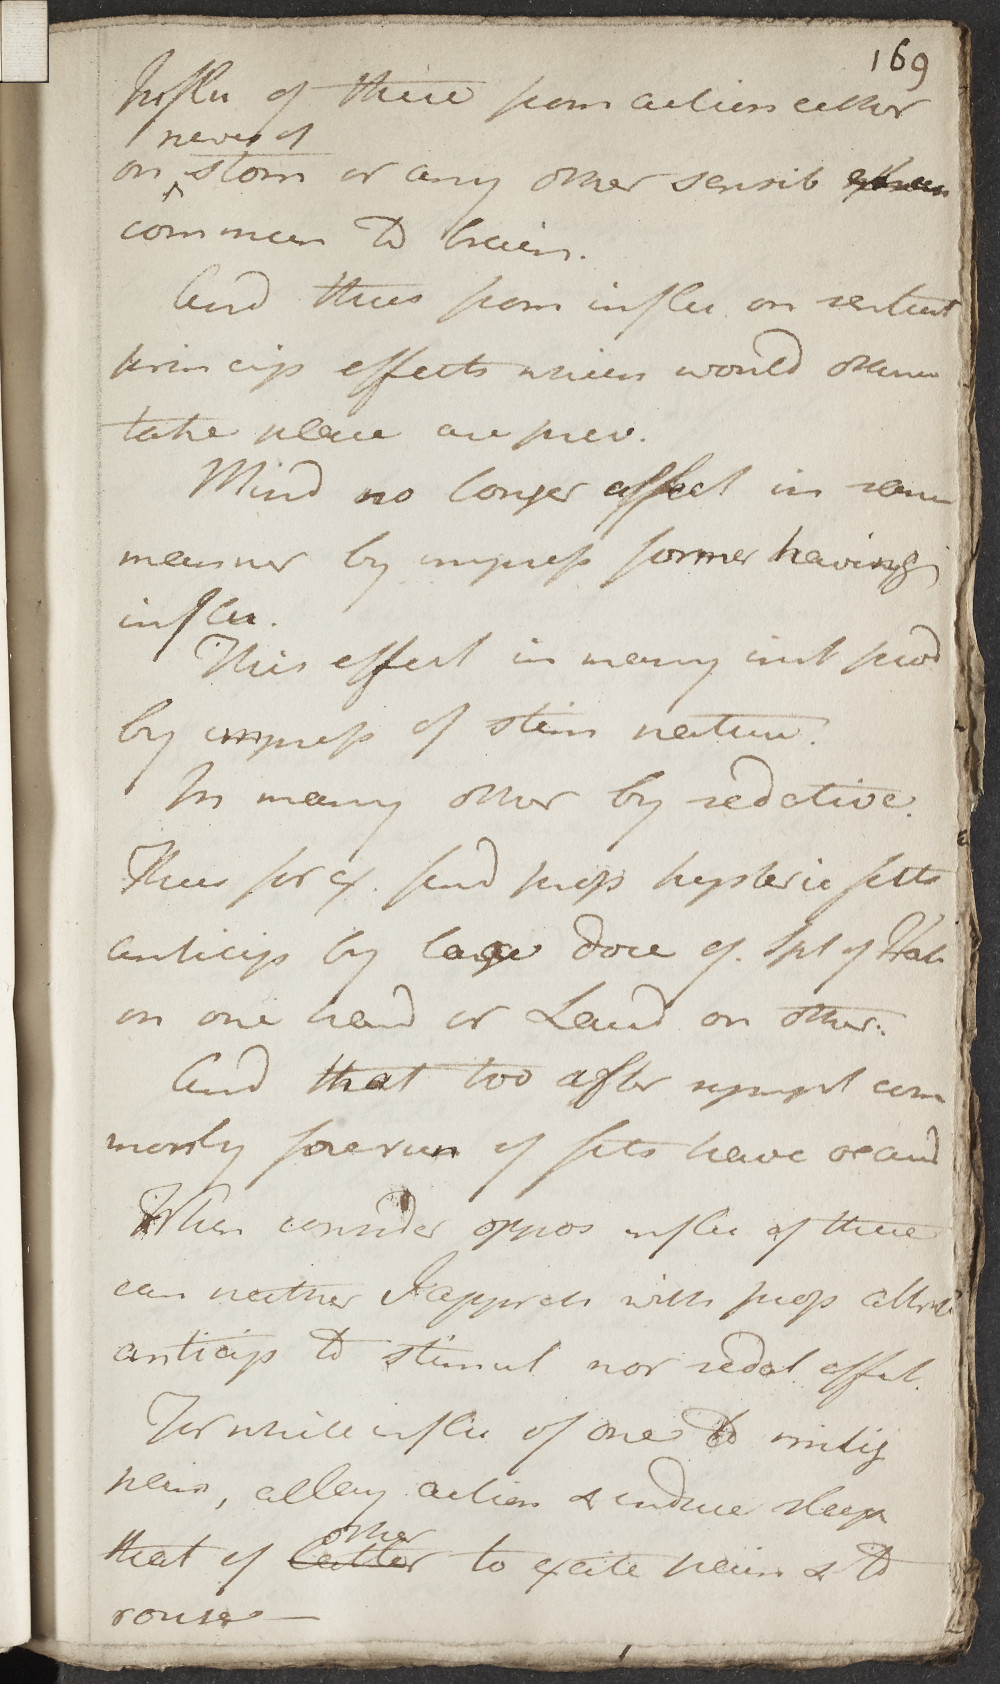 169
Influ of these from action either
nerves of
on stom or any other sensib
commun to brain.
And thus from influ on sentient
princip effects which would otherw
take place are prev.
Mind no longer affect in same
manner by impress former having
influ.
This effect in many inst prod
by impress of stim nature.
In many other by sedative.
Thus for ex. find prop hysteric fitts
anticip by large dose of Spt of Hart
on one hand or Laud on other.
And that too after sympt com
monly forerun of fits have occurrd
When consider oppos influ of these
can neither I appreh with prop attrib
anticip to stimul nor sedat effect.
For while influ of one to mitig
pain, allay action & induce sleep
other
that of latter to excite pain & to
rouse —